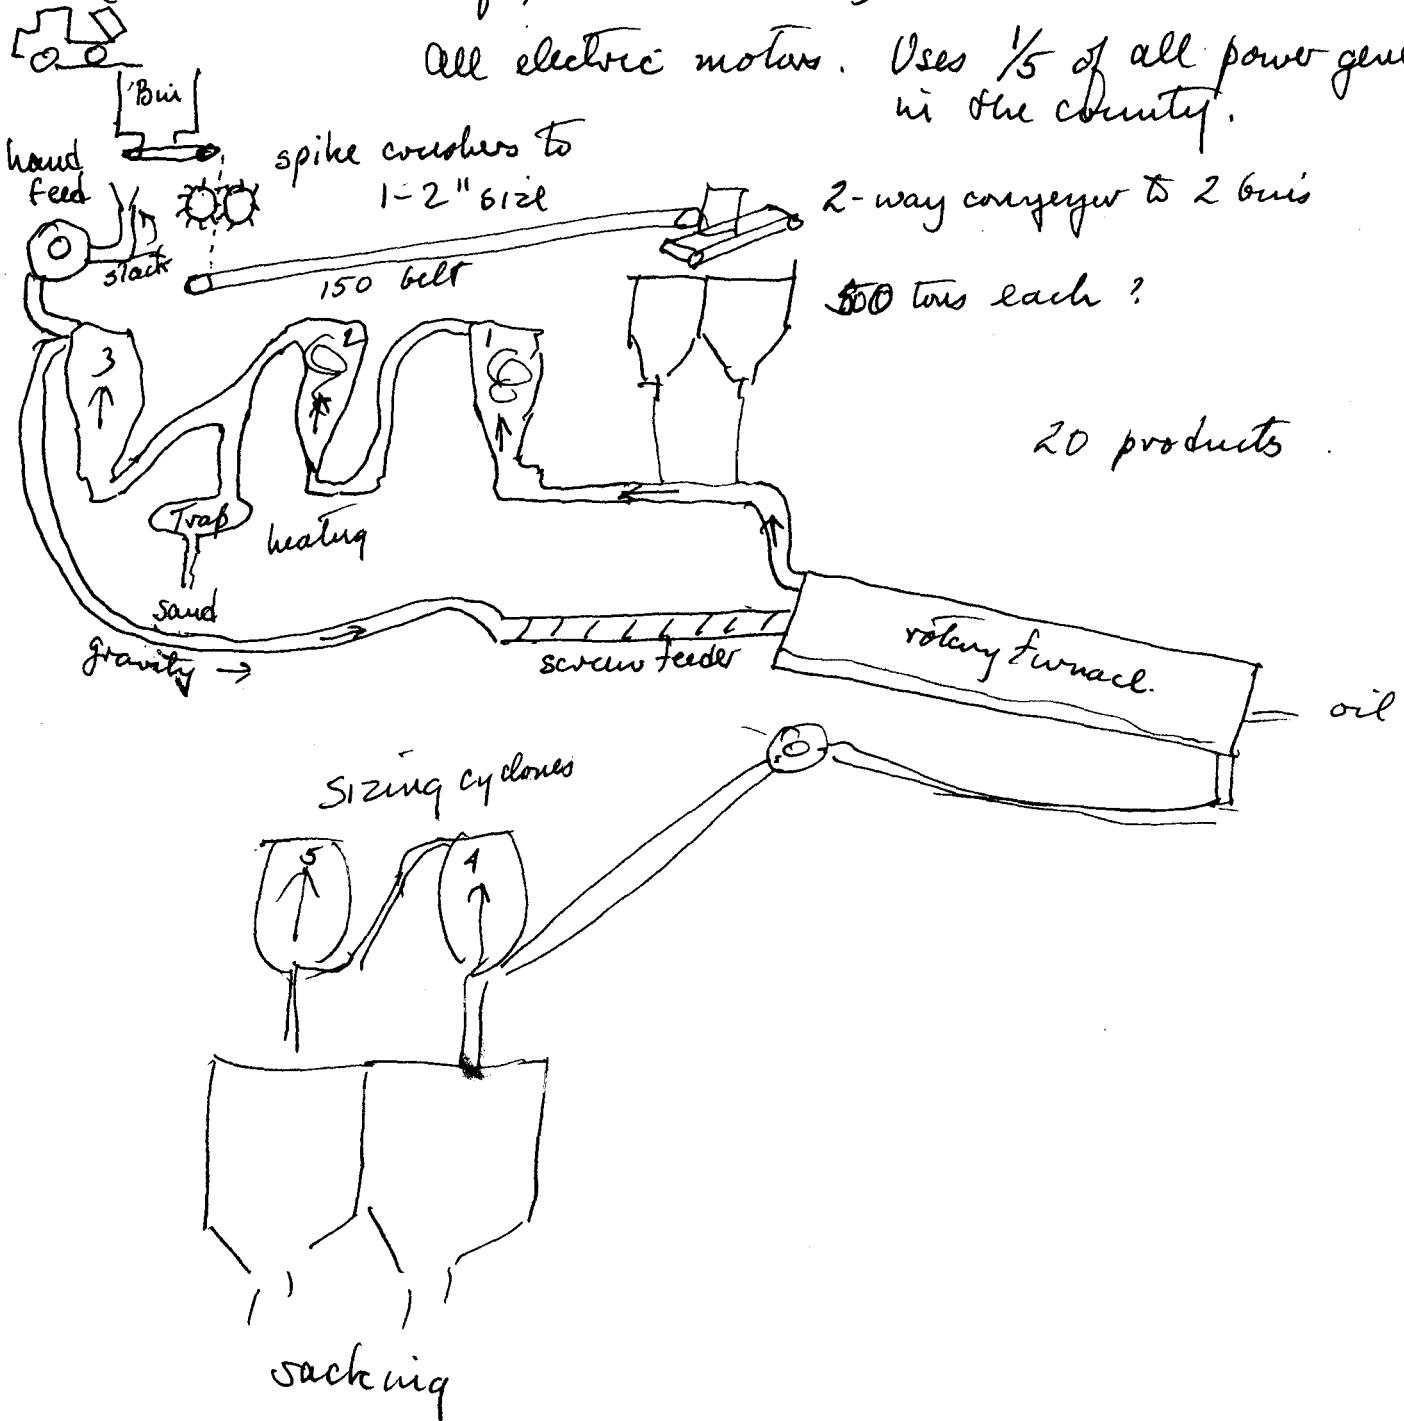 all electric motors. Uses 1/5 of all power gene
in the county.
Bin
hand
feed
spike crushers to
1-2" size
stack
150 belt
2-way conveyer to 2 bins
500 tons each ?
3
2
1
20 products
Trap
heating
sand
gravity →
screw feeder
rotary furnace.
oil
Sizing cyclones
5
4
sacking